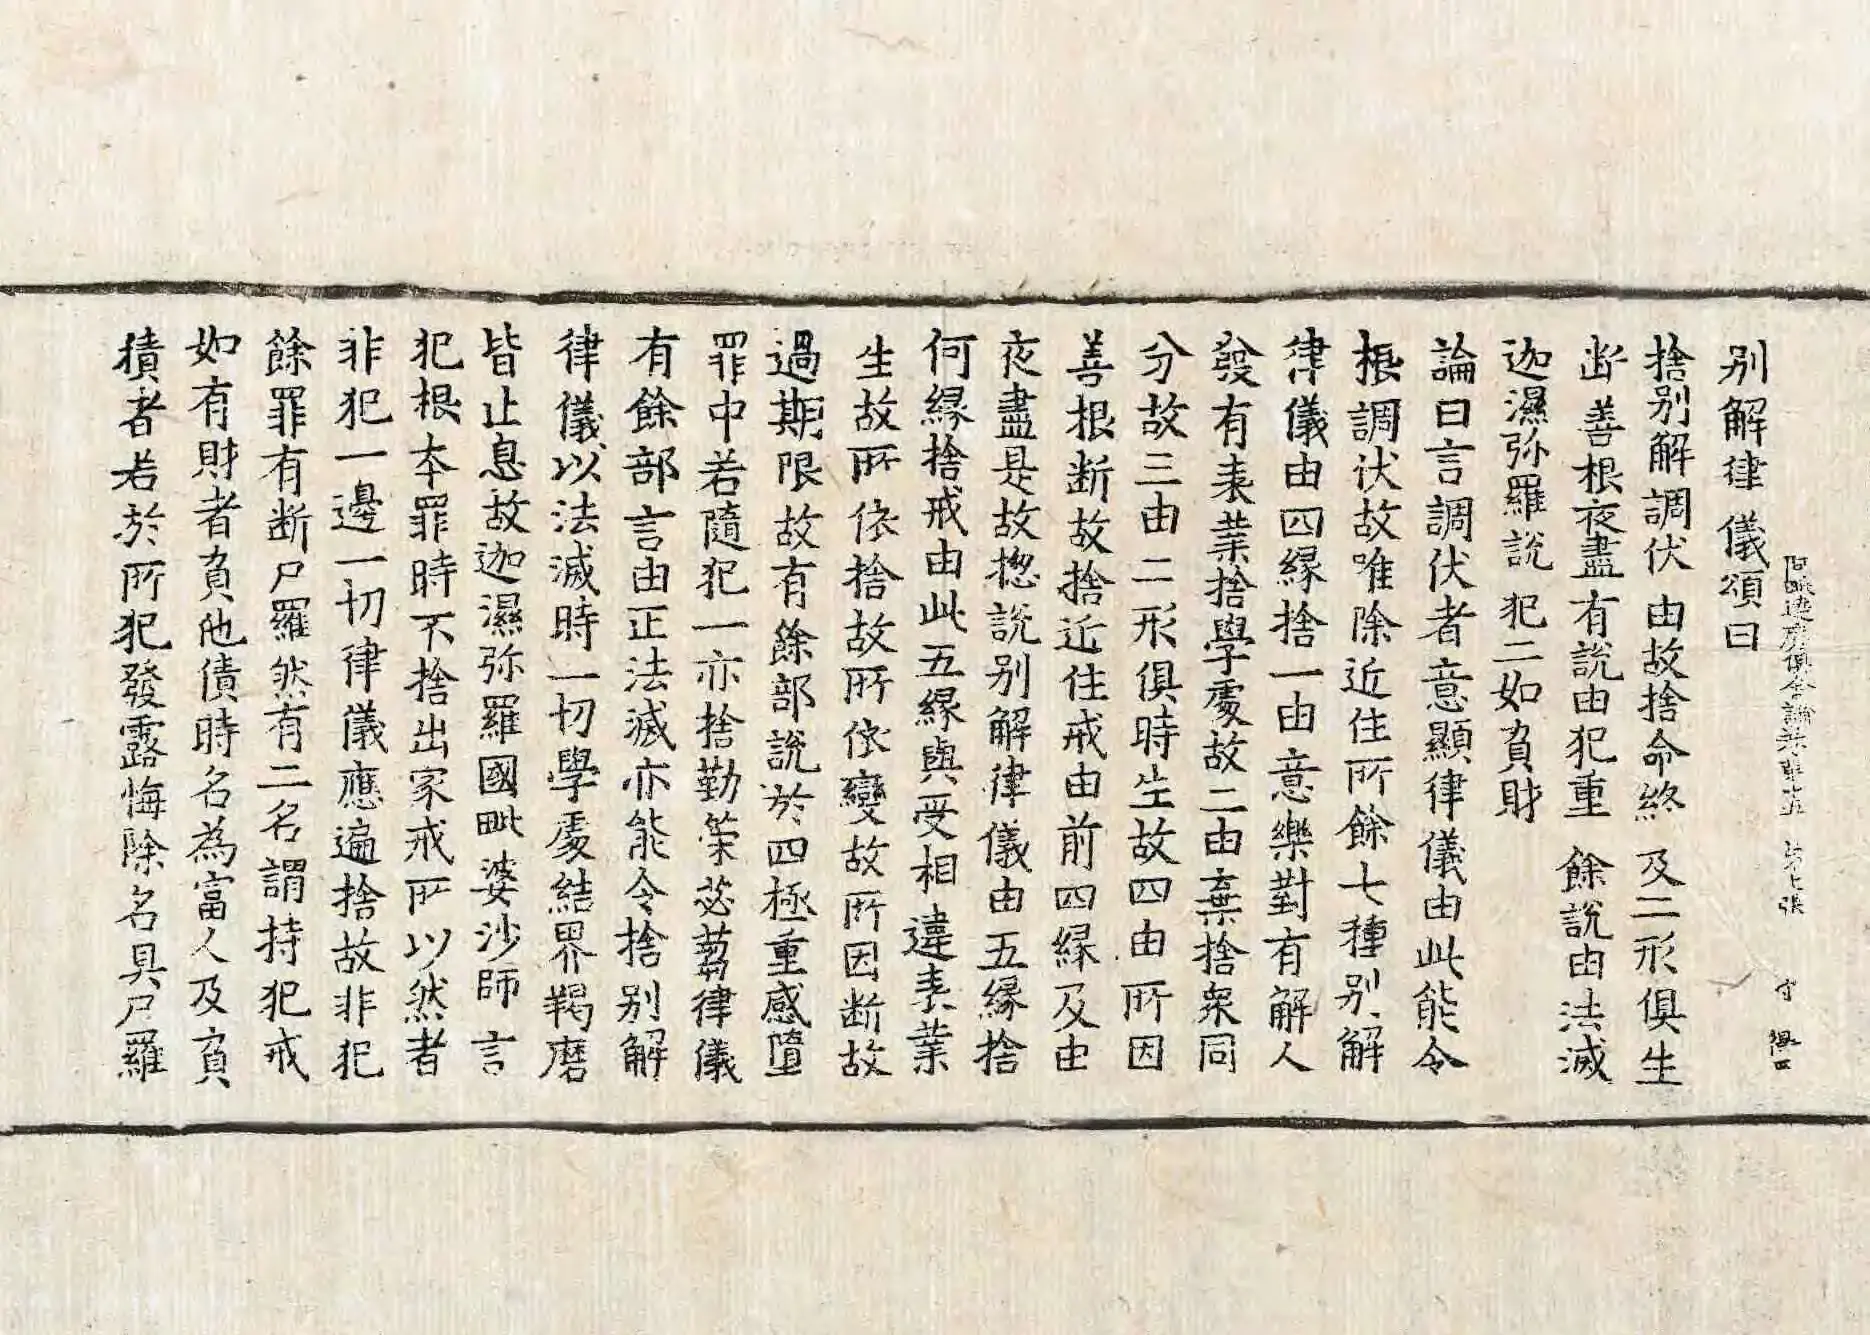 阿毗達磨俱舍論卷第十五 第七張
別解律儀頌曰
捨別解調伏 由故捨命終 及二形俱生
断善根夜盡 有說由犯重 餘說由法滅
迦濕弥羅說 犯二如負財
論曰言調伏者意顯律儀由此能令
根調伏故唯除近住所餘七種別解
律儀由四緣捨一由意樂對有解人
發有表業捨學處故二由棄捨衆同
分故三由二形俱時生故四由所因
善根断故捨近住戒由前四緣及由
夜盡是故揔說別解律儀由五緣捨
何緣捨戒由此五緣與受相違表業
生故所依捨故所依變故所因断故
過期限故有餘部說於四極重感墮
罪中若隨犯一亦捨勤策苾蒭律儀
有餘部言由正法滅亦能令捨別解
律儀以法滅時一切學處結界羯磨
皆止息故迦濕弥羅國毗婆沙師言
犯根本罪時不捨出家戒所以然者
非犯一邊一切律儀應遍捨故非犯
餘罪有断尸羅然有二名謂持犯戒
如有財者負他債時名為富人及負
債者若於所犯發露悔除名具尸羅